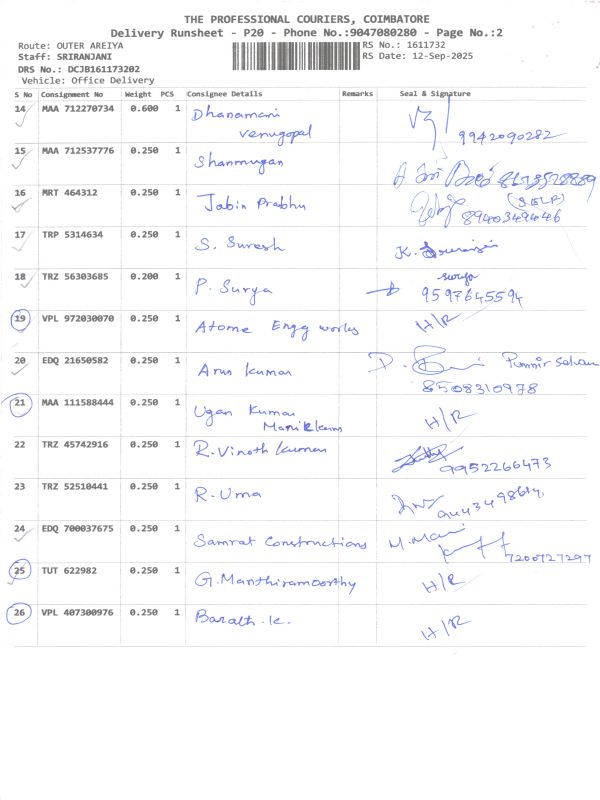 THE PROFESSIONAL COURIERS, COIMBATORE
Delivery Runsheet - P20 - Phone No.:9047080280 - Page No.:2
Route: OUTER AREIYA
RS No.: 1611732
Staff: SRIRANJANI
RS Date: 12-Sep-2025
DRS No.: DCJB161173202
Vehicle: Office Delivery
S No Consignment No Weight PCS Consignee Details Remarks Seal & Signature
14 MAA 712270734 0.600 1 Dhanamani
Venugopal 9942090282
15 MAA 712537776 0.250 1 Shanmugan
16 MRT 464312 0.250 1 Jabin Prabhu (SELF)
8940349446
17 TRP 5314634 0.250 1 S. Suresh K.
18 TRZ 56303685 0.200 1 P. Surya Surya
9597645594
19 VPL 972030070 0.250 1 Atome Engg works H/R
20 EDQ 21650582 0.250 1 Arun Kumar
8508310978
21 MAA 111588444 0.250 1 Ugan Kumar H/R
22 TRZ 45742916 0.250 1 R. Vinoth Kumar 9952266473
23 TRZ 52510441 0.250 1 R. Uma
24 EDQ 700037675 0.250 1 Samrat Constructions M. Mani
7200727297
25 TUT 622982 0.250 1 G. Manthiramoorthy H/R
26 VPL 407300976 0.250 1 Barath. K. H/R